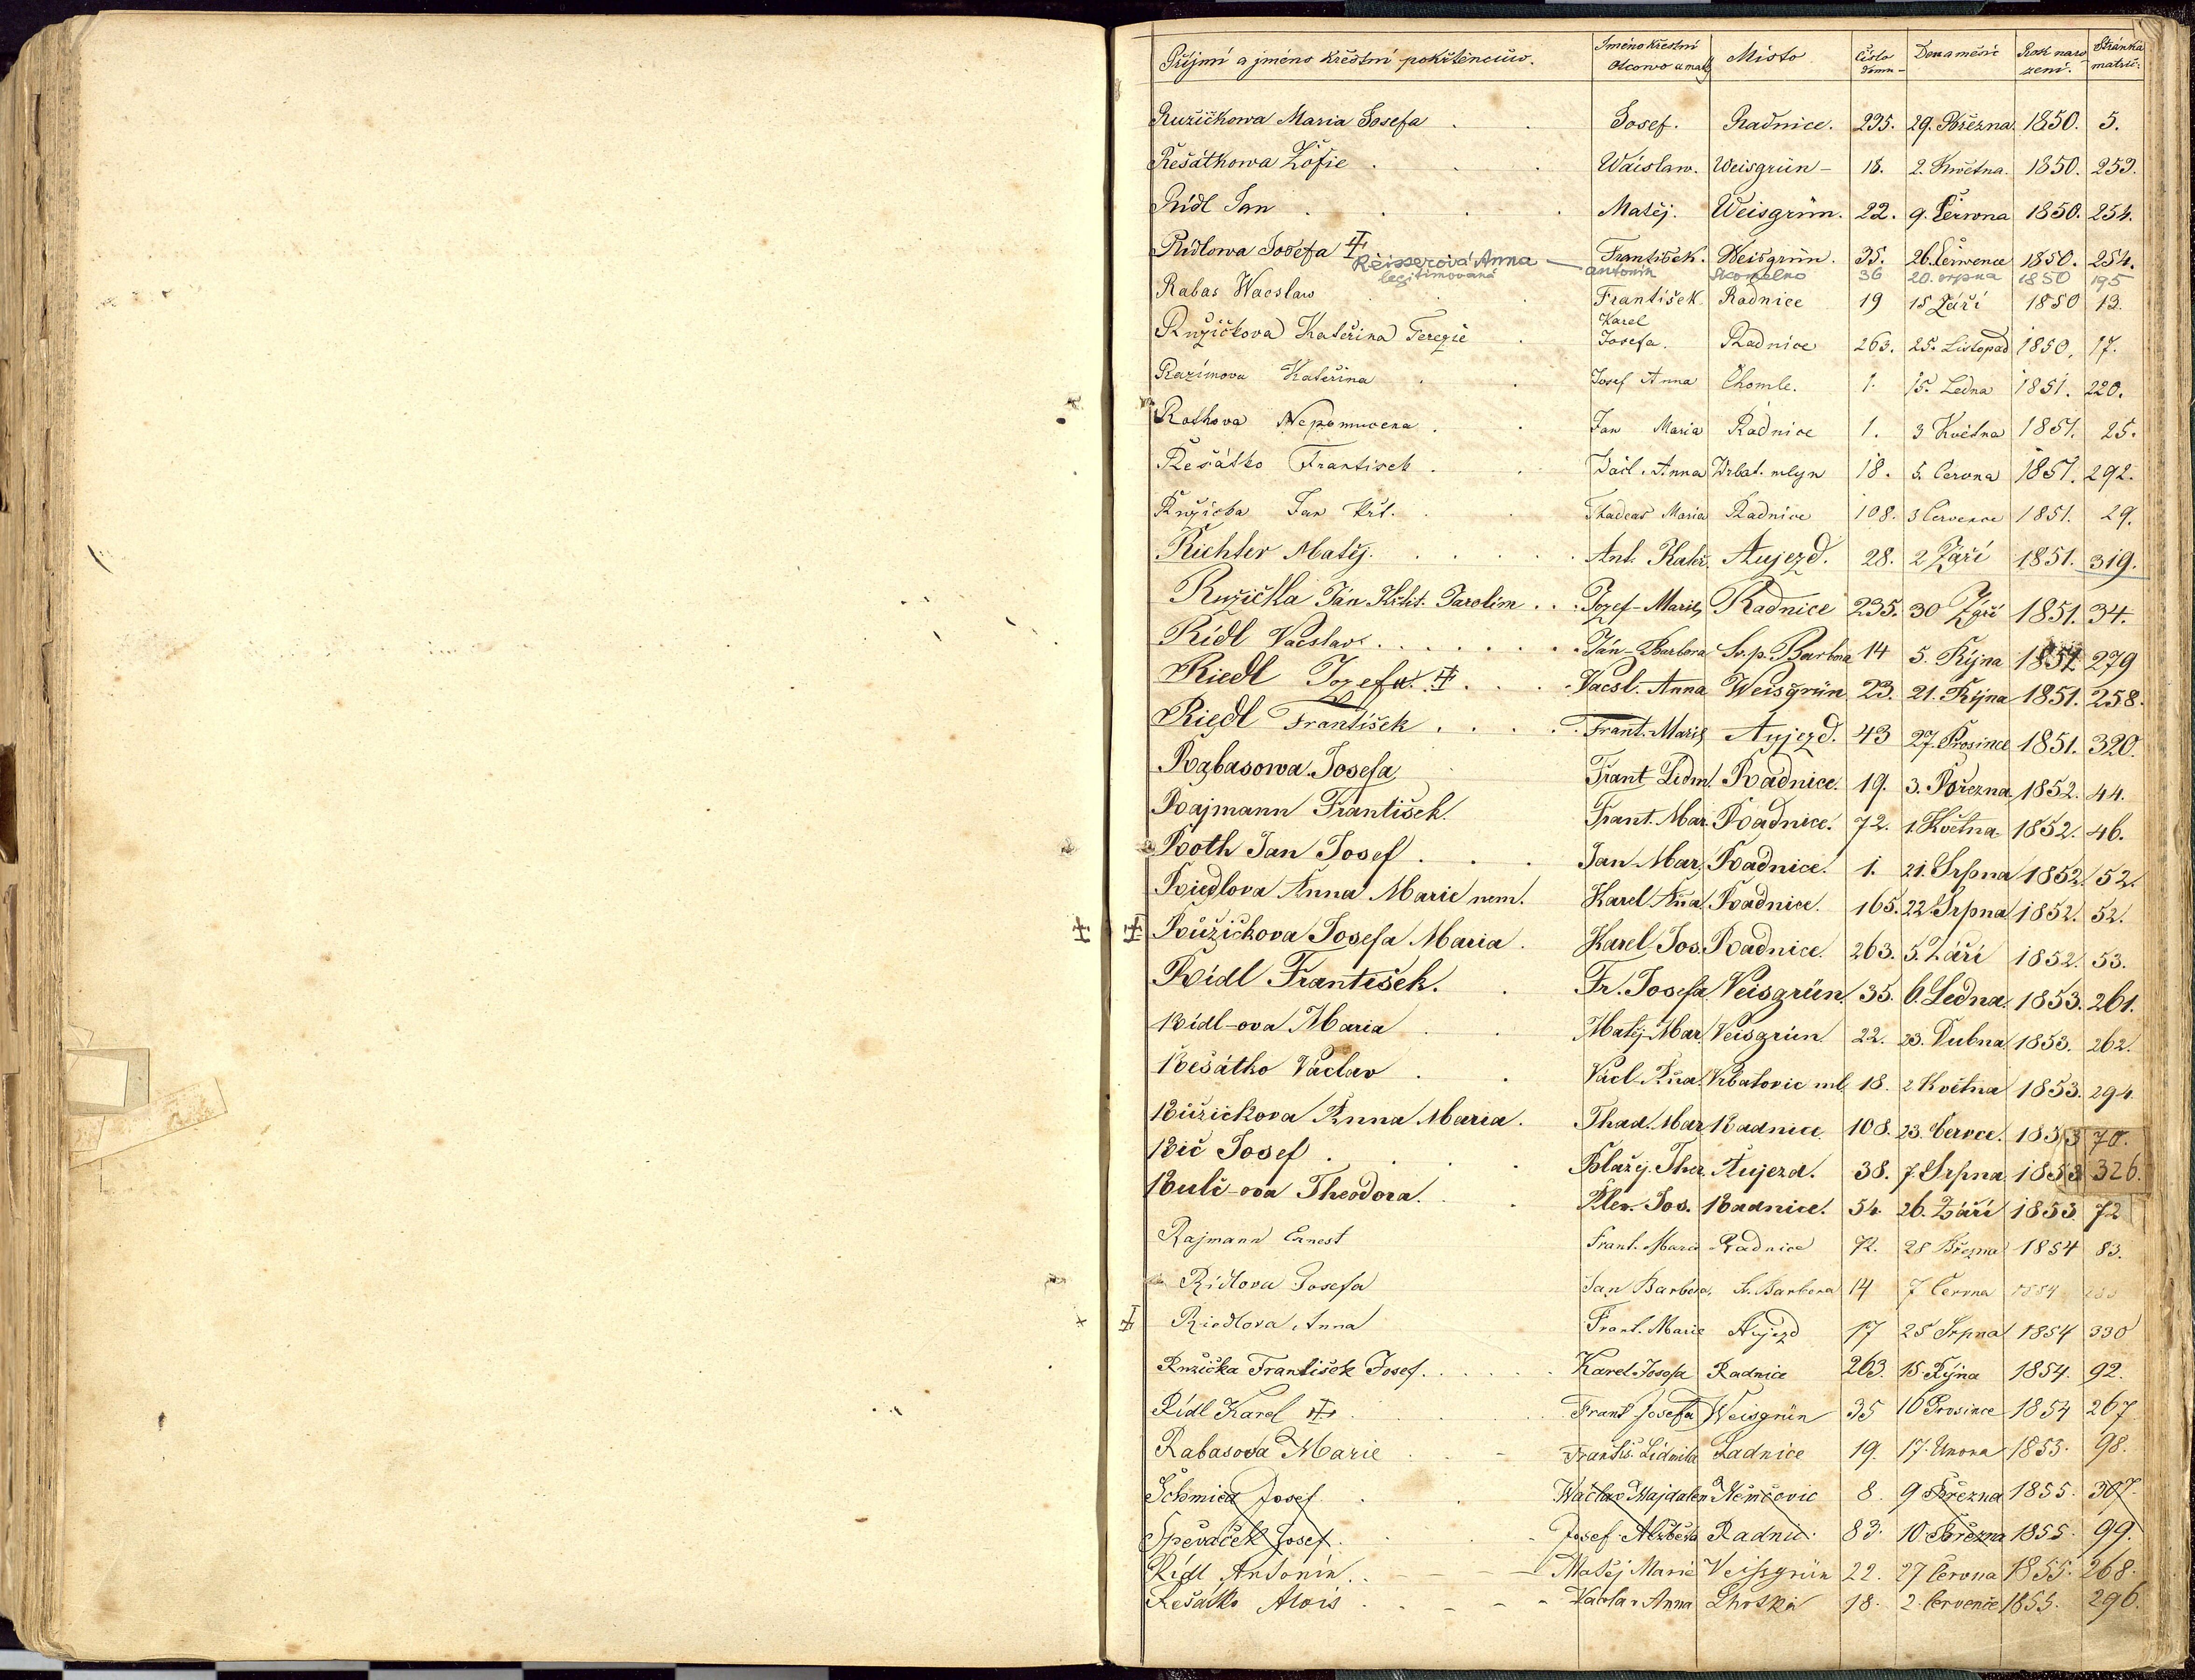 Příjmí a jméno křestní pokřtěncůw. Jméno křestní Otcowo a matky Místo Číslo domu Den a měsíc Rok naro zení. Stránka matrič.
Ružičkowa Maria Josefa Josef. Radnice. 235. 29. Března 1850. 5.
Rešátkowa Žofie Wáclaw. Weisgrün 18. 2. Května. 1850. 253.
Rídl Jan Matěj. Weisgrün. 22. 9. Června 1850. 254.
Rídlowa Josefa František. Weisgrün. 35. 26. Července 1850. 254.
Reisserová Anna legitimovaná antonín Skomelno 36 20. srpna 1850 195
Rabas Wacslaw František. Radnice 19 15 Září 1850 13.
Ružičkova Kateřina Terezie Karel Josefa. Radnice 263. 25. Listopad 1850. 17.
Razímova Kateřina Josef Anna Chomle. 1. 15. Ledna 1851. 220.
Rothova Nepomucena Jan Maria Radnice 1. 3 Května 1851. 25.
Rešátko Frantisek Václ. Anna Wrbat. mlyn 18. 5. Června 1851. 292.
Ružička Jan Křt. Thadeas Maria Radnice 108. 3 Července 1851. 29.
Richter Matěj. Ant. Kateř. Aujezd. 28. 2 Září 1851. 319.
Ružička Ján Křtit. Jarolím Jozef-Marie Radnice 235. 30 Září 1851. 34.
Rídl Vacslav Ján-Barbora Sv. p. Barbora 14 5. Října 1851 279
Riedl Jozefa. Vacsl. Anna Weisgrün 23. 21. Října 1851. 258.
Riedl František Frant. Marie Aujezd. 43 27. Prosince 1851. 320.
Rabasowa Josefa Frant Lidm. Radnice. 19. 3. Března 1852. 44.
Rajmann František. Frant. Mar. Radnice. 72. 1. Května 1852. 46.
Roth Jan Josef Jan Mar. Radnice. 1. 21. Srpna 1852. 52.
Riedlova Anna Marie nem. Karel Aňa. Radnice. 165. 22 Srpna 1852. 52.
Růžičkova Josefa Maria. Karel Jos. Radnice. 263. 5. Září 1852. 53.
Rídl František. Fr. Josefa Veisgrün. 35. 6. Ledna. 1853. 261.
Rídl-ova Maria Matěj-Mar. Veisgrün 22. 23. Dubna 1853. 262.
Rešátko Václav Václ. Aňa. Vrbatovic ml. 18. 2 Května 1853. 294.
Růžickova Anna Maria. Thad. Mar. Radnice. 108. 23. Červce. 1853 70.
Rič Josef Blažej. Ther. Aujezd. 38. 7. Srpna 1853 326.
Rulč-ova Theodora. Alex. Jos. Radnice. 54 26. Září 1853. 72
Rajmann Ernest Frant. Maria Radnice 72. 28 Března 1854 83.
Ridlova Josefa Jan Barbora S. Barbora 14 7 Června 1854
Riedlova Anna Frant. Marie Aujezd 17 25 Srpna 1854 330
Ružička František Josef. Karel Josefa Radnice 263. 15 Října 1854. 92.
Rídl Karel Frant Josefa Weisgrün 35 10 Prosince 1854 267
Rabasova Marie Františ. Lidmila Radnice 19. 17. Února 1855. 98.
Schmied Josef Waclav Majdalen Němčovic 8. 9 Března 1855. 307.
Spěváček Josef. Josef Alžběta Radnic. 83. 10 Března 1855. 99.
Rídl Antonín. Matěj Marie Veissgrün 22. 27 Června 1855. 268.
Rešátko Alois Václav Anna Lhotka 18. 2. Července 1855. 296.